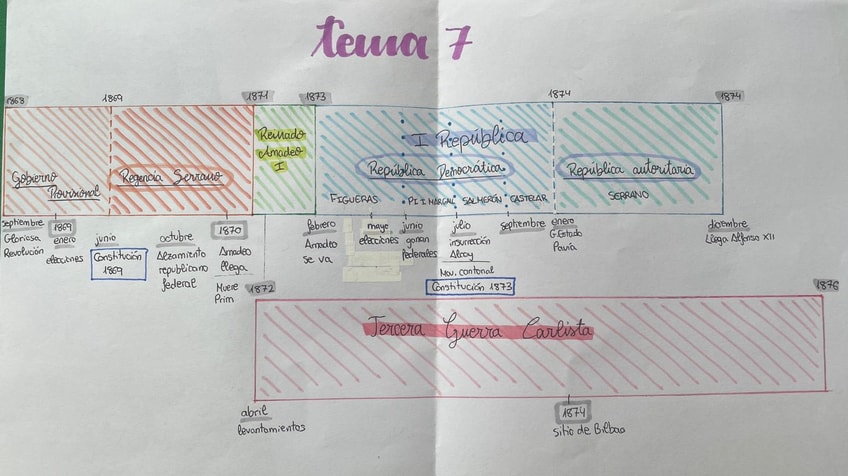 tema 7
1868
1869
1871
1873
1874
1874
Gobierno
Provisional
Regencia Serrano
Reinado
Amadeo
I
I República
República Democrática
FIGUERAS
PI I MARGAL
SALMERÓN
CASTELAR
República autoritaria
SERRANO
septiembre
Gloriosa
Revolución
1869
enero
elecciones
junio
Constitución
1869
octubre
Alzamiento
republicano
federal
1870
Amadeo
llega
Muere
Prim
febrero
Amadeo
se va
mayo
elecciones
junio
ganan
federales
julio
insurrección
Alcoy
Mov. cantonal
Constitución 1873
septiembre
enero
G.Estado
Pavía
diciembre
llega Alfonso XII
1872
1876
Tercera Guerra Carlista
abril
levantamientos
1874
sitio de Bilbao